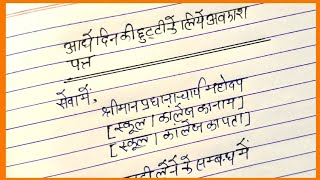 आधे दिन की छुट्टी के लिये अवकाश
पत्र
सेवा में,
श्रीमान प्रधानाचार्य महोदय
[स्कूल / कॉलेज का नाम]
[स्कूल / कॉलेज का पता]
लेने के सम्बन्ध में